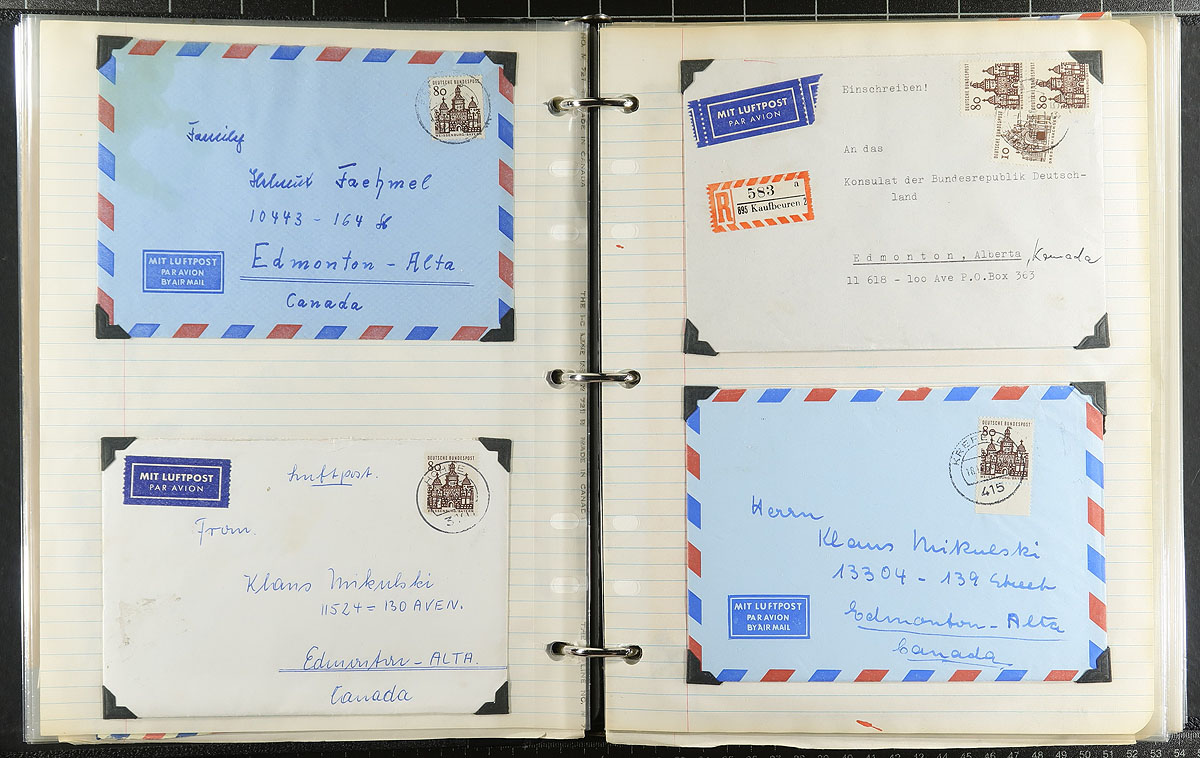 DEUTSCHE BUNDESPOST
80
Family
Helmut Faehmel
10443 - 164
Edmonton - Alta
Canada
MIT LUFTPOST
PAR AVION
BY AIR MAIL
MIT LUFTPOST
PAR AVION
Luftpost.
DEUTSCHE BUNDESPOST
80
From.
Klaus Mikulski
11524 = 130 AVEN.
Edmonton - ALTA.
Canada
MADE IN CANADA
MIT LUFTPOST
PAR AVION
Einschreiben!
DEUTSCHE BUNDESPOST
80
DEUTSCHE BUNDESPOST
80
DEUTSCHE BUNDESPOST
10
An das
Konsulat der Bundesrepublik Deutsch-
land
R
583 a
895 Kaufbeuren 2
Edmonton, Alberta, Kanada
11 618 - 100 Ave P.O.Box 363
DEUTSCHE BUNDESPOST
80
415
Herrn
Klaus Mikulski
13304 - 139 Street
Edmonton - Alta
Canada
MIT LUFTPOST
PAR AVION
BY AIR MAIL